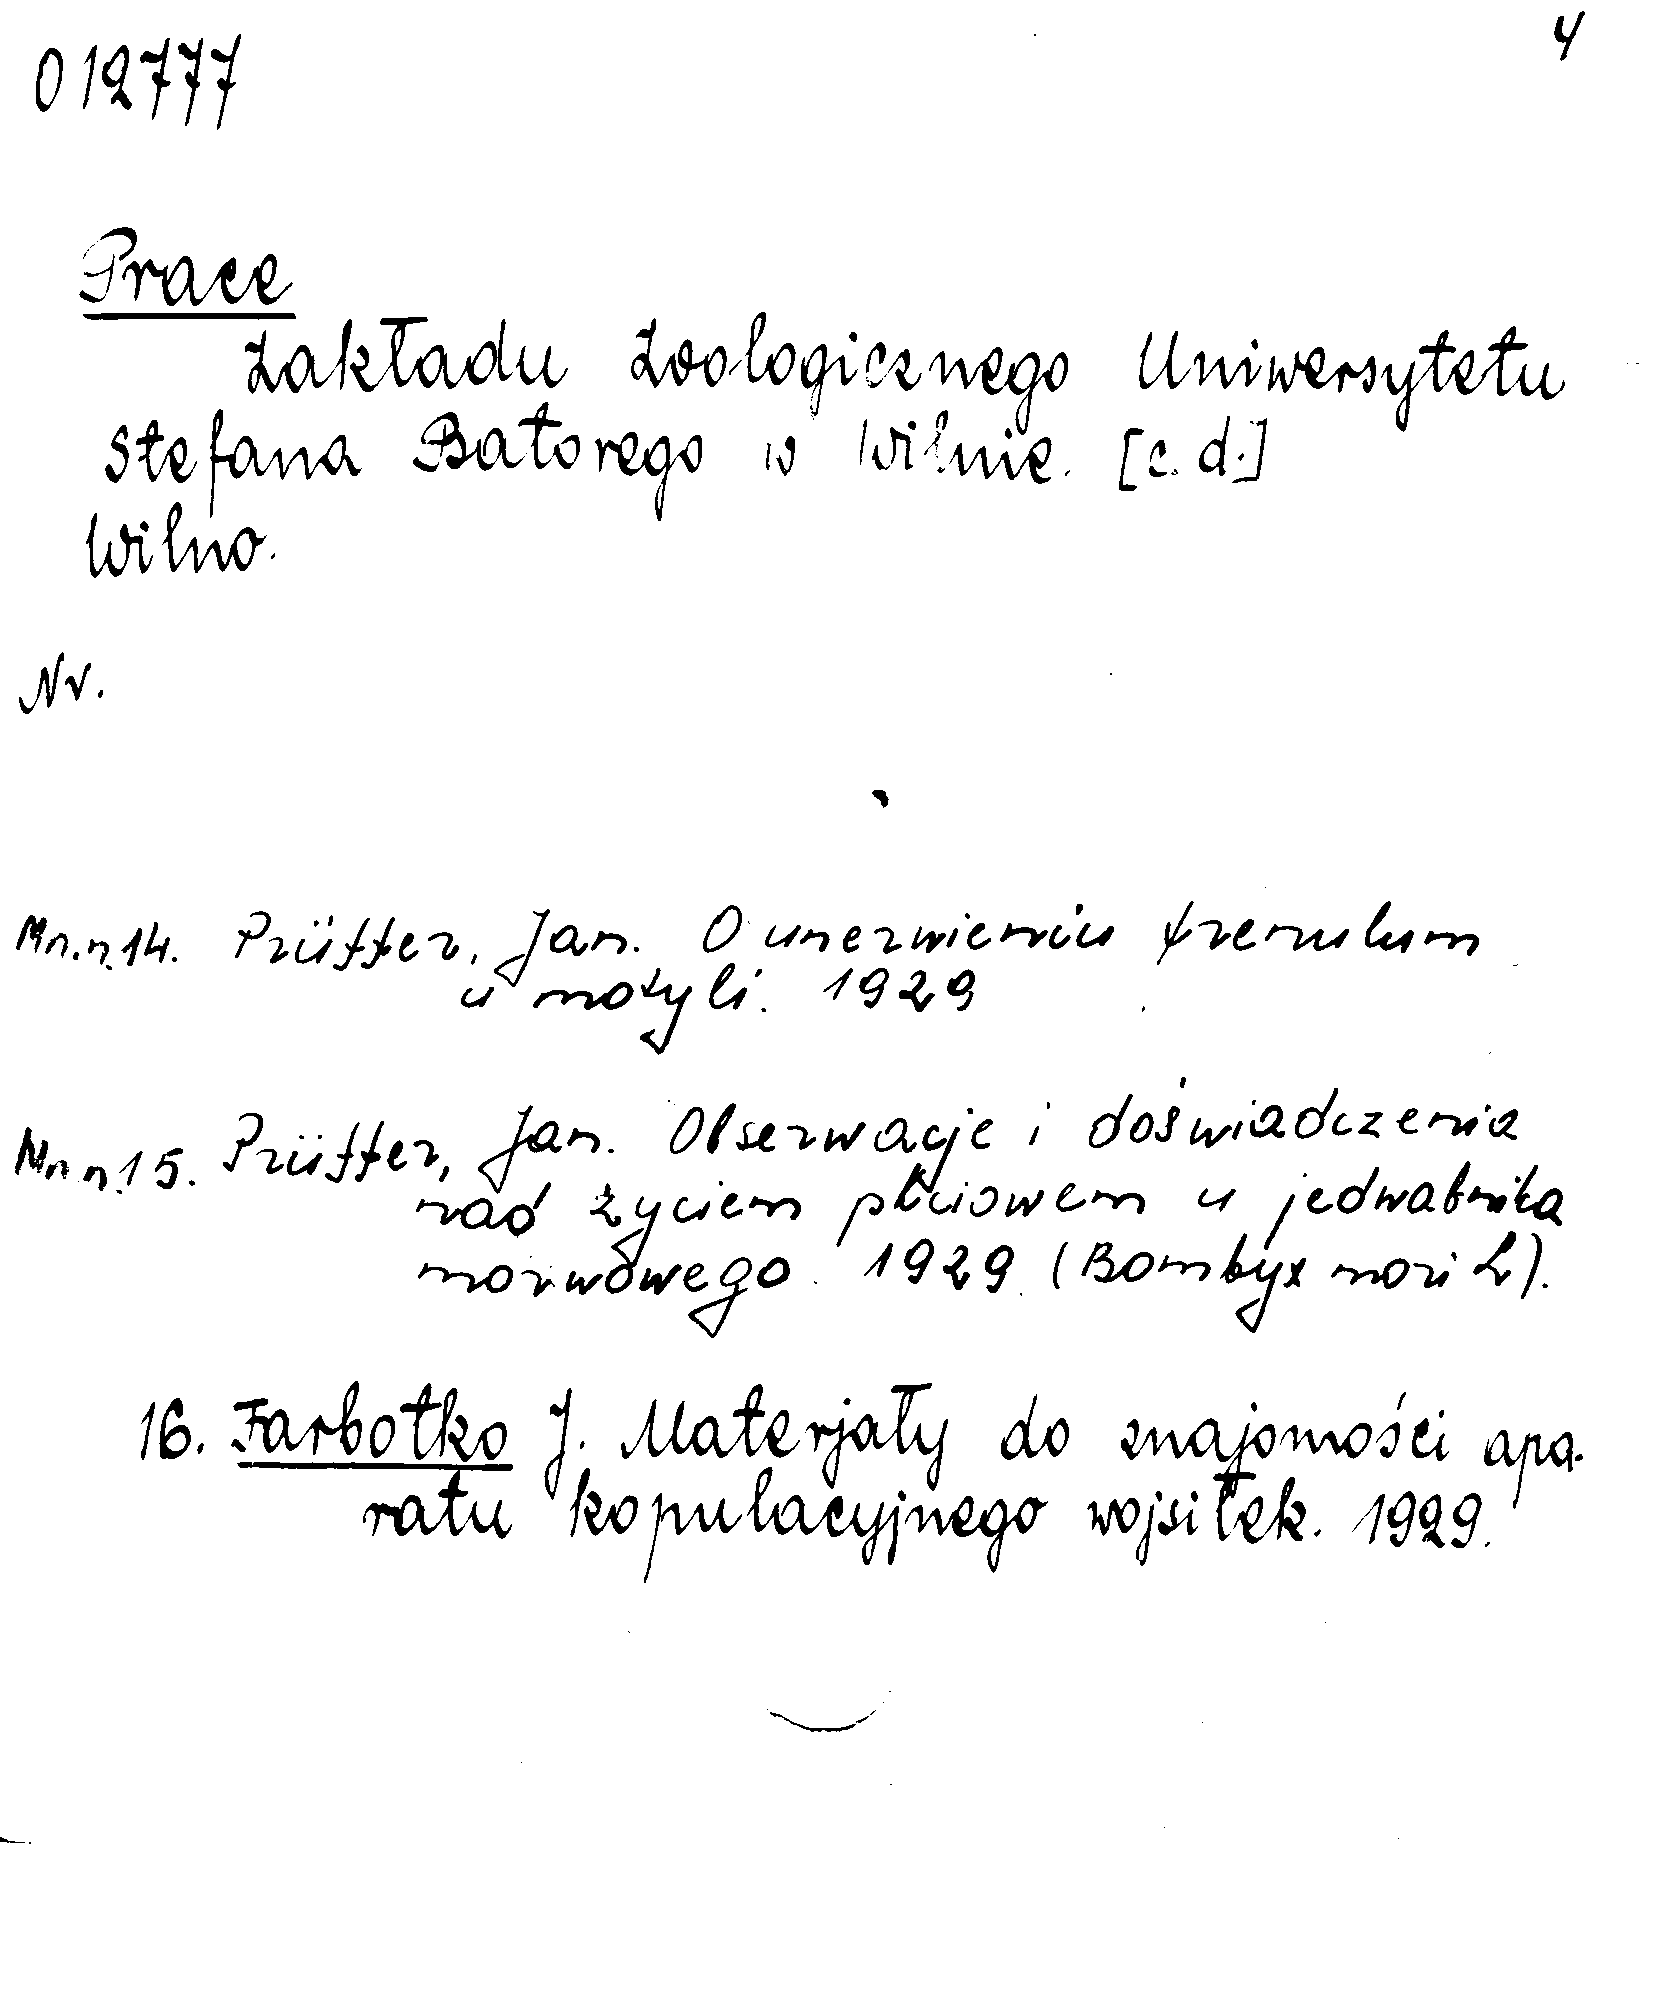 012777
4
Prace
Zakładu Zoologicznego Uniwersytetu
Stefana Batorego w Wilnie. [c.d.]
Wilno.
Nr.
Mn.n.14. Prüffer, Jan. O unerwieniu frenulum
u motyli. 1929
Mn.n.15. Prüffer, Jan. Obserwacje i doświadczenia
nad życiem płciowem u jedwabnika
morwowego. 1929. (Bombyx mori L).
16. Farbotko J. Materjały do znajomości apa-
ratu kopulacyjnego wojsiłek. 1929.